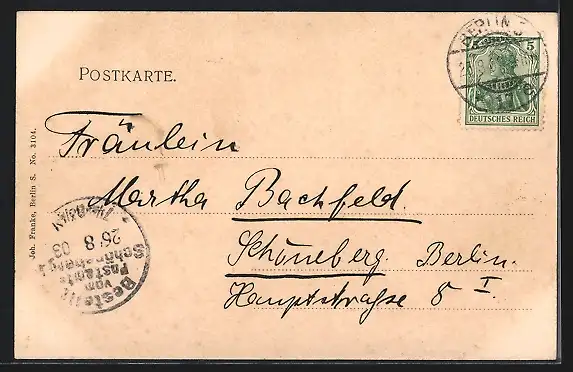 BERLIN
5
DEUTSCHES REICH
POSTKARTE.
Fräulein
Martha Bachfeld.
Schöneberg. Berlin.
Hauptstraße 8 I.
Joh. Franke, Berlin S. No. 3104.
26 8 03
Bestellt
vom
Postamte
Schöneberg